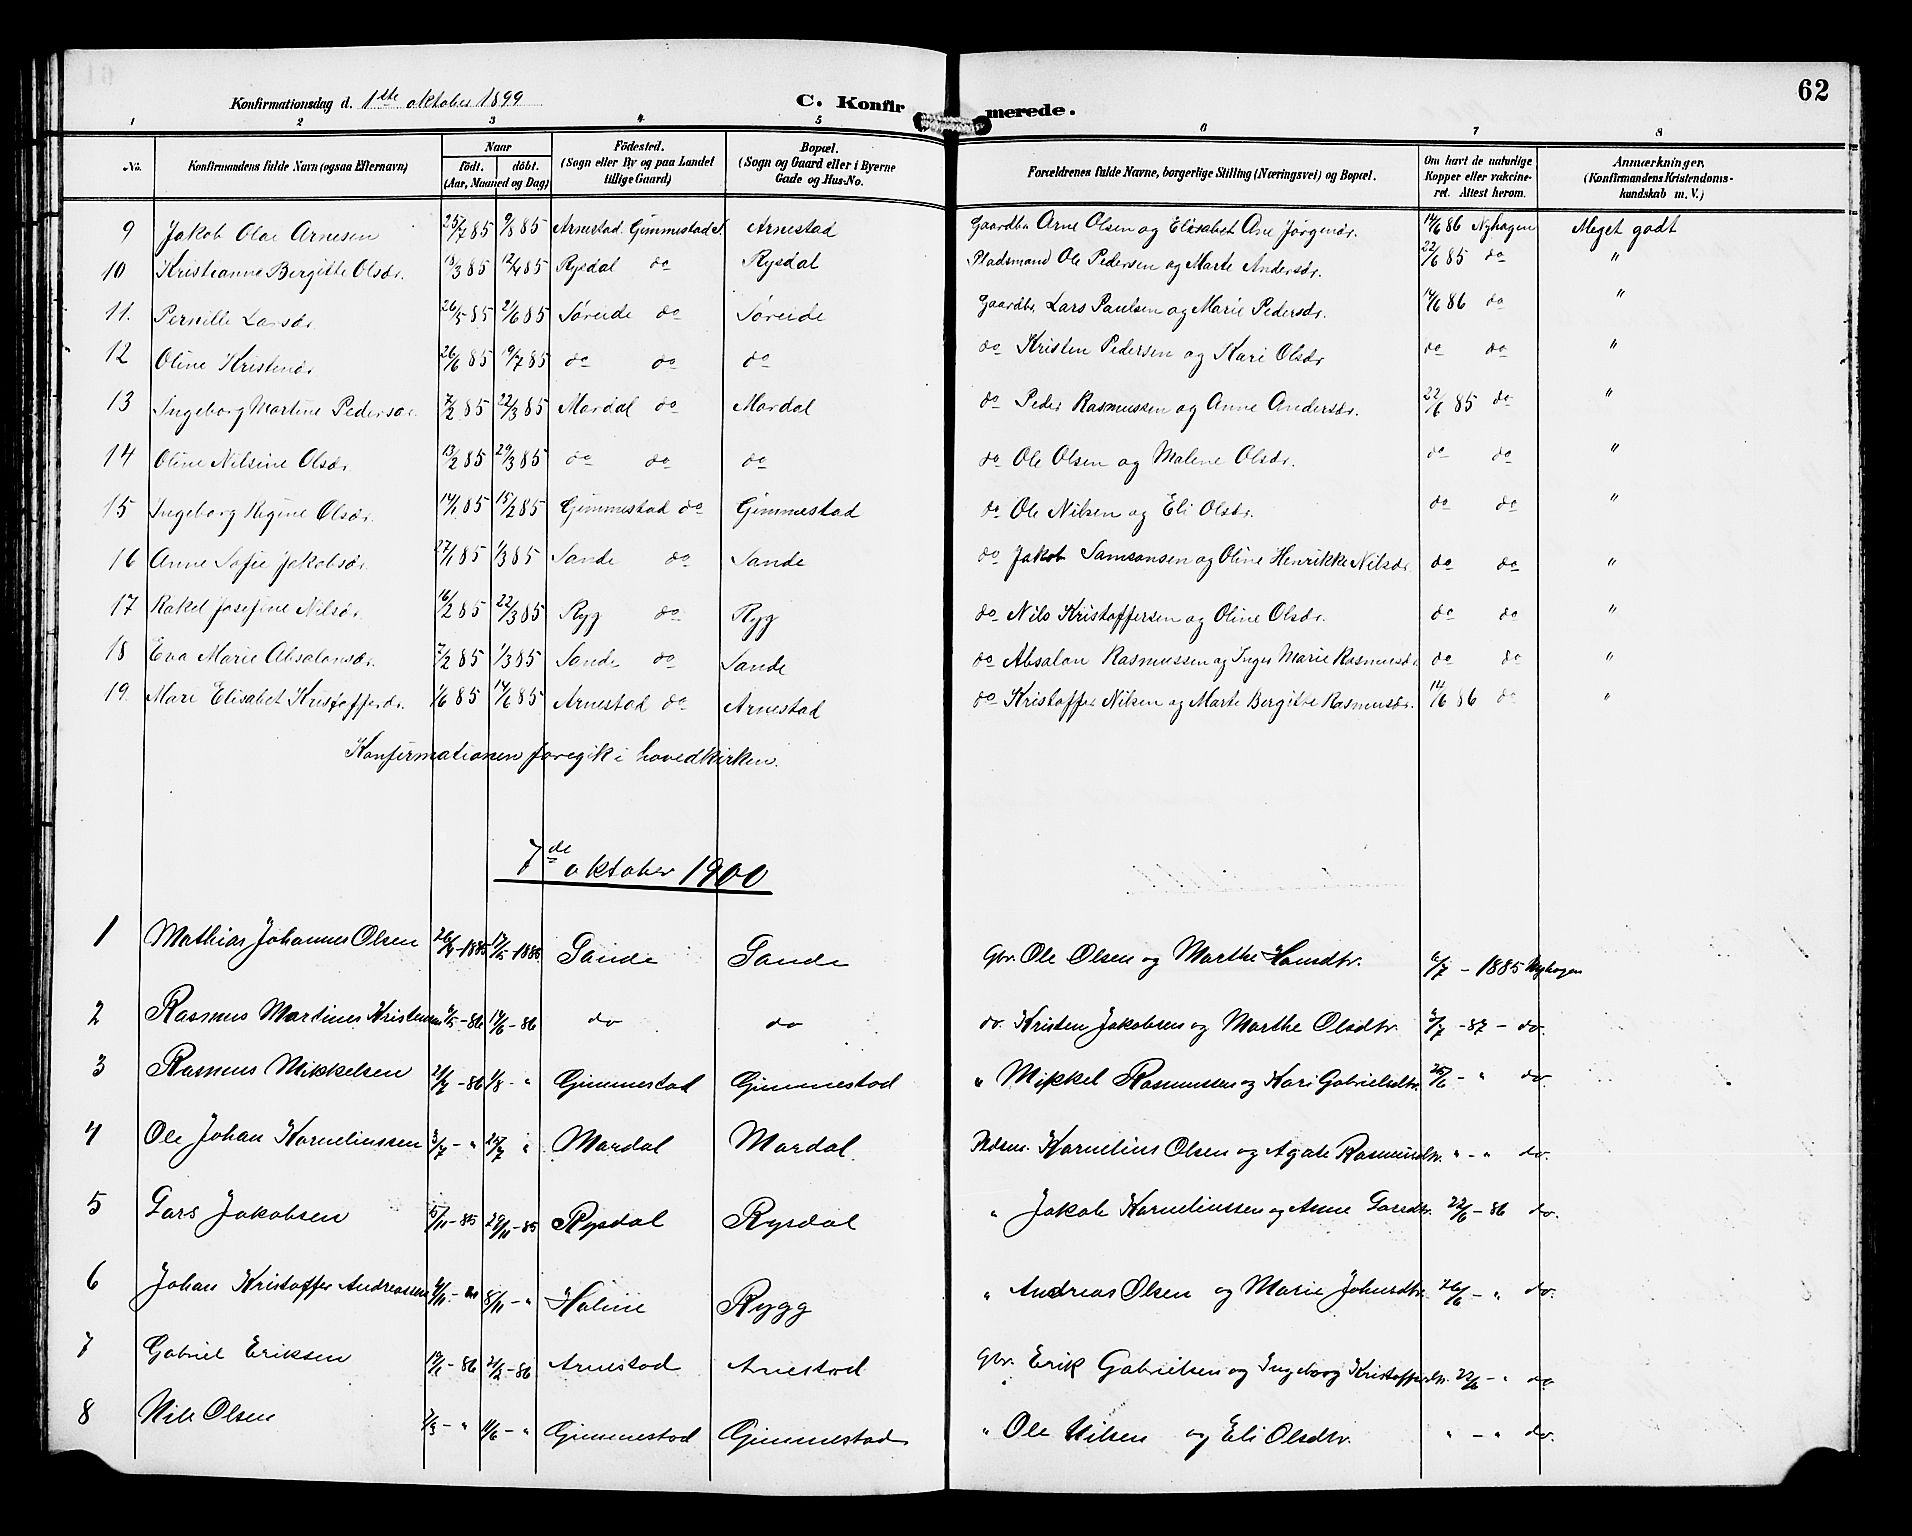 62
Konfirmationsdag d. 1ste oktober 1899 C. Konfirmerede.
1 2 3 4 5 6 7 8
No. Konfirmandens fulde Navn (ogsaa Efternavn) Naar født. døbt. (Aar, Maaned og Dag) Fødested. (Sogn eller By og paa Landet tillige Gaard) Bopæl. (Sogn og Gaard eller i Byerne Gade og Hus-No. Forældrenes fulde Navne, borgerlige Stilling (Næringsvei) og Bopæl. Om havt de naturlige Kopper eller vakcineret. Attest herom. Anmærkninger, (Konfirmandens Kristendomskundskab m. V.)
9 Jakob Olai Arnesen 25/7 85 9/8 85 Arnestad Gimmestad s. Arnestad Gaardbr Arne Olsen og Elisabet Ane Jørgensdr. 14/6 86 Nyhagen Meget godt
10 Kristianne Bergitte Olsdr. 13/3 85 12/4 85 Rysdal do Rysdal Pladsmand Ole Pedersen og Marte Andersdr. 22/6 85 do "
11. Pernille Larsdr 26/5 85 21/6 85 Søreide do Søreide Gaardbr. Lars Paulsen og Marie Pedersdr. 14/6 86 do "
12 Oline Kristensdr 26/6 85 19/7 85 do do do do Kristen Pedersen og Kari Olsdr do do "
13 Ingeborg Martine Pedersdr. 7/2 85 22/3 85 Mardal do Mardal do Peder Rasmussen og Anne Andersdr. 22/6 85 do "
14 Oline Nilsine Olsdr. 13/2 85 29/3 85 do do do do Ole Olsen og Malene Olsdr. do do "
15 Ingeborg Regine Olsdr. 14/1 85 15/2 85 Gimmestad do Gimmestad do Ole Nilsen og Eli Olsdr. do do "
16 Anne Sofie Jakobsdr. 27/1 85 1/3 85 Sande do Sande do Jakob Samsonsen og Oline Henrikke Nilsdr. do do "
17 Rakel Josefine Nilsdr. 16/2 85 22/3 85 Ryg do Ryg do Nils Kristoffersen og Oline Olsdr. do do "
18 Eva Marie Absalonsdr. 7/2 85 1/3 85 Sande do Sande do Absalon Rasmussen og Inger Marie Rasmusdr. do do "
19. Mari Elisabet Kristofferdr. 1/6 85 14/6 85 Arnestad do Arnestad do Kristoffer Nilsen og Marte Bergitte Rasmusdr. 14/6 86 do "
Konfirmationen foregik i hovedkirken.
7de oktober 1900
1 Mathias Johannes Olsen 26/4-1885 17/5-1885 Sande Sande Gbr. Ole Olsen og Marthe Hansdtr. 6/7 - 1885 Nyhagen
2 Rasmus Martinus Kristensen 6/5-86 14/6-86 do do do. Kristen Jakobsen og Marthe Olsdtr. 3/7 -87 - do.
3 Rasmus Mikkelsen 21/7-86 1/8 - " Gimmestad Gimmestad " Mikkel Rasmussen og Kari Gabrielsdtr. 25/6 - " do.
4 Ole Johan Korneliussen 3/7 - " 25/7 " Mardal Mardal. Pldsm. Kornelius Olsen og Agate Rasmusdtr. " - " do.
5 Lars Jakobsen 5/11-85 29/11-85 Rysdal Rysdal " Jakob Korneliussen og Anne Larsdtr. 22/6 - 86 do.
6 Johan Kristoffer Andreassen 8/11 - " Rygg " Andreas Olsen og Marie Johnsdtr. 26/6 - " do.
7 Gabriel Eriksen 19/1-86 21/2-86 Arnestad Arnestad Gbr. Erik Gabrielsen og Ingeborg Kristofferdtr. 22/6 - " do
8 Nils Olsen - " - " Gimmestad Gimmestad " Ole Nilsen og Eli Olsdtr. " - " do.